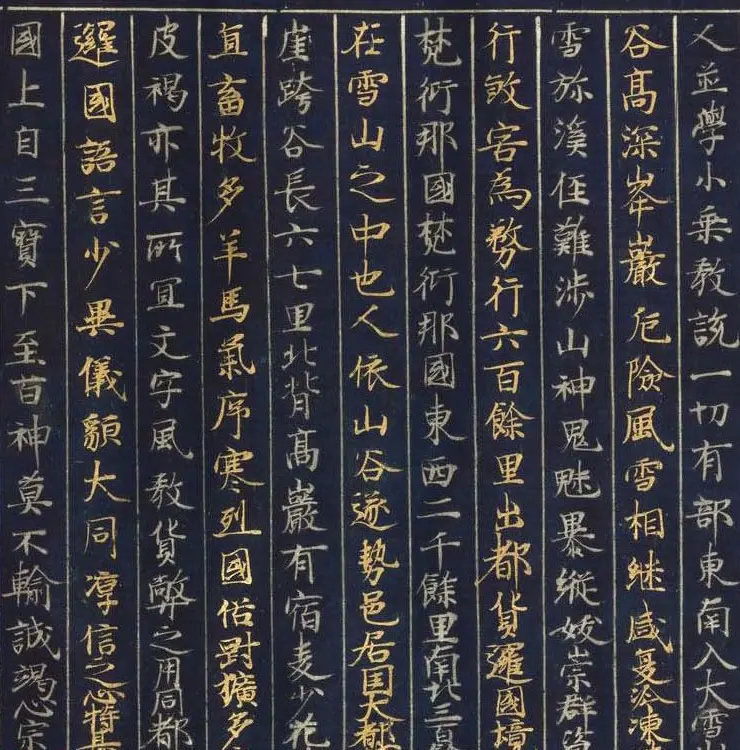 人並學小乘教說一切有部東南入大雪
谷高深峯巖危險風雪相継盛夏冷凍
雪弥漢任難涉山神鬼魅暴縱妖崇群盗
行煞害為務行六百餘里出都貨邏國境
梵衍那國梵衍那國東西二千餘里南北三百
在雪山之中也人依山谷逐勢邑居国大都
崖跨谷長六七里北背高巖有宿麦少花
宜畜牧多羊馬氣序寒烈國俗對獷多
皮褐亦其所宜文字風教貨弊之用同都
邏國語言少異儀貌大同淳信之心特甚
國上自三寶下至百神莫不輸誠竭心宗